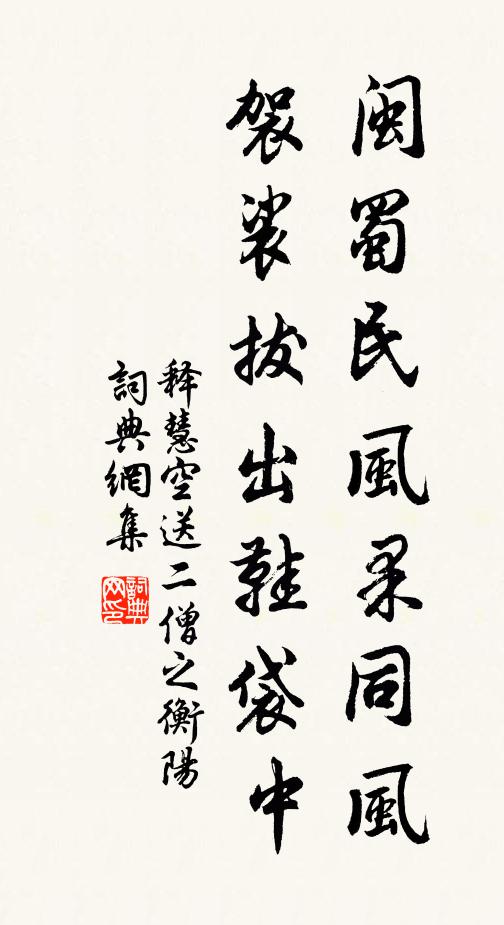 閩蜀民風果同風
袈裟拔出鞋袋中
释慧空送二僧之衡陽
詞典網集
詞典网印